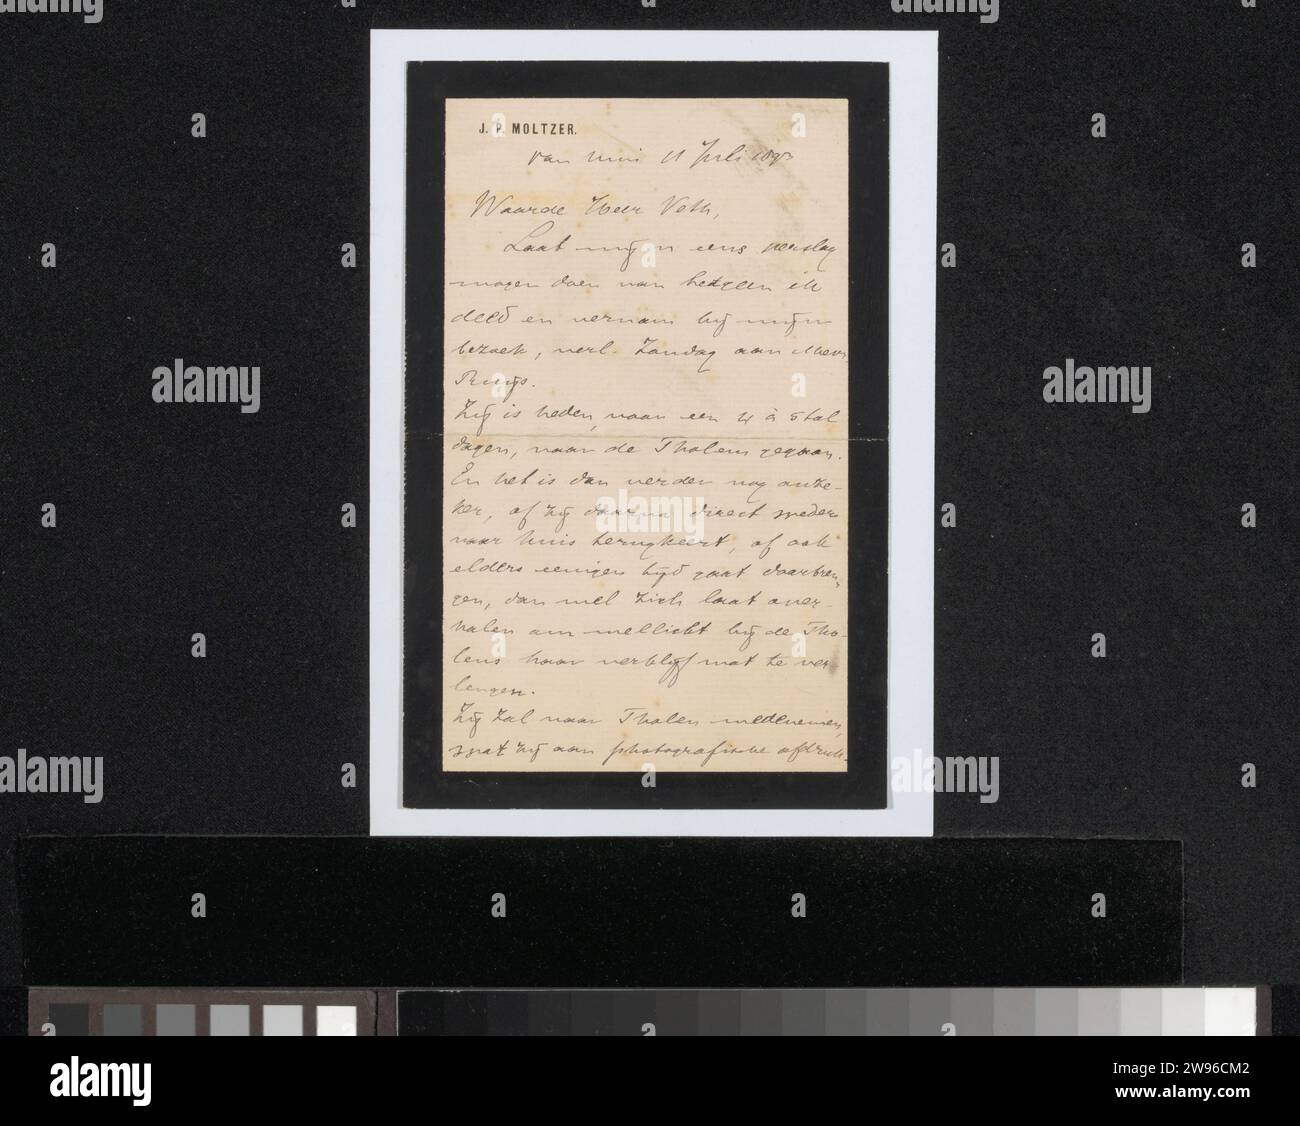 J. P. MOLTZER.
van huis 11 Juli 1893
Waarde Heer Veth,
Laat mij u eens verslag
mogen doen van hetgeen ik
deed en vernam bij mijn
bezoek, verl. Zondag aan Mevr
Ruijs.
Zij is heden, voor een 4 à 5tal
dagen, naar de Tholens gegaan.
En het is dan verder nog onze-
ker, of zij daarna direct weder
naar huis terugkeert, of ook
elders eenigen tijd gaat doorbren-
gen, dan wel zich laat over-
halen om wellicht bij de Tho-
lens haar verblijf wat te ver
lengen.
Zij zal naar Tholen medenemen,
wat zij aan photografische afdruk-
alamy
alamy
Image ID: 2W96CM2
www.alamy.com